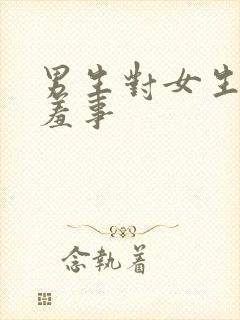 男生對女生
羞事
念執着